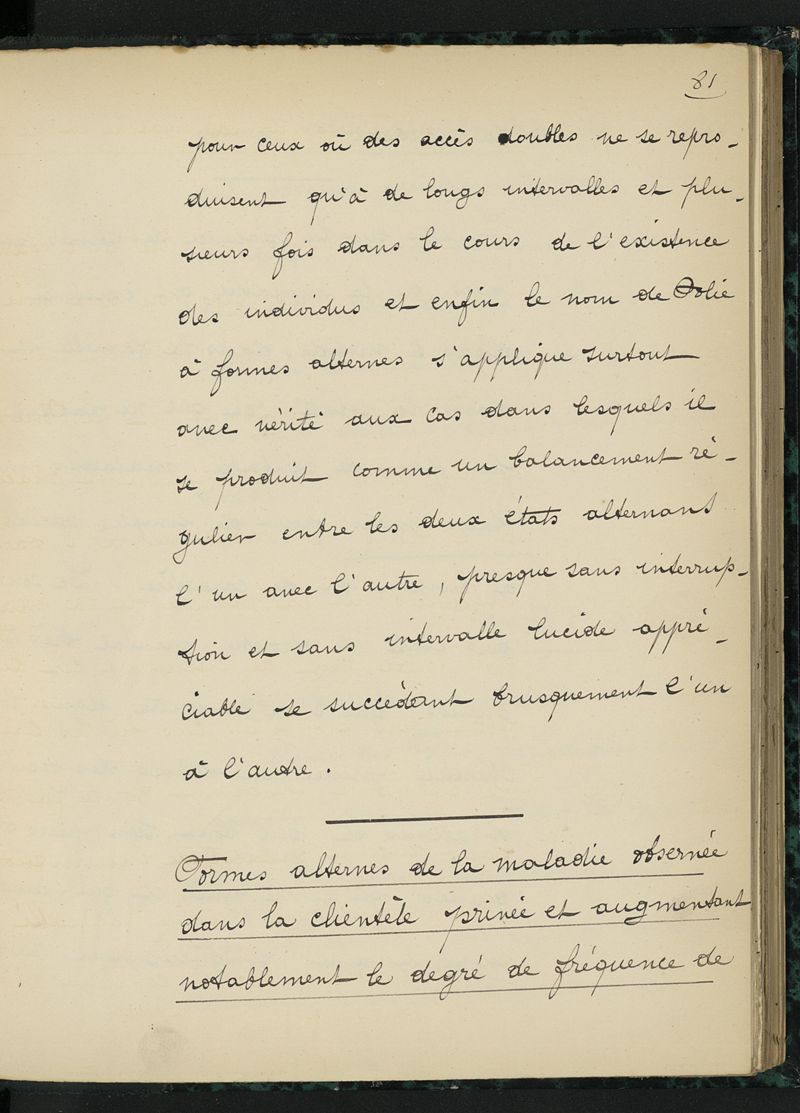 81
pour ceux où des accès doubles ne se repro-
duisent qu'à de longs intervalles et plu-
sieurs fois dans le cours de l'existence
des individus et enfin le nom de Folie
à formes alternes s'applique surtout
avec vérité aux cas dans lesquels il
se produit comme un balancement ré-
gulier entre les deux états alternant
l'un avec l'autre, presque sans interrup-
tion et sans intervalle lucide appré-
ciable se succédant brusquement l'un
à l'autre.
Formes alternes de la maladie observée
dans la clientèle privée et augmentant
notablement le degré de fréquence de